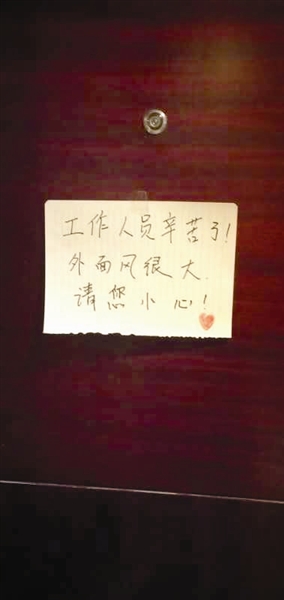 工作人员辛苦了!
外面风很大.
请您小心!